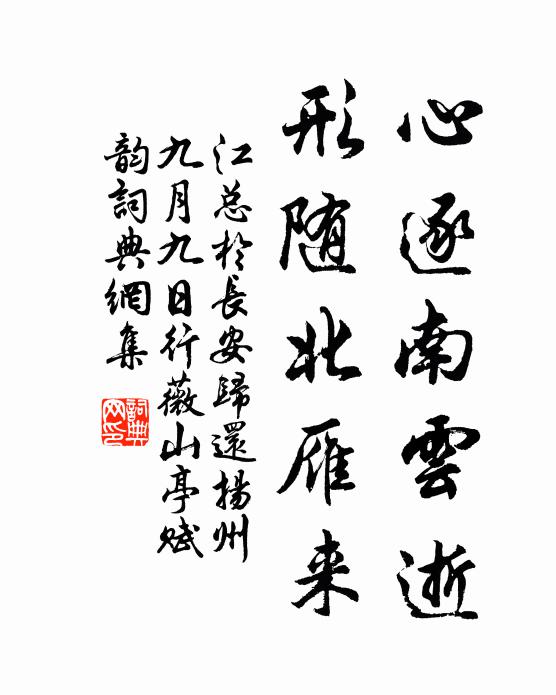 心逐南雲逝
形随北雁来
江总於長安歸還揚州
九月九日行薇山亭賦
韵詞典網集
詞典网印